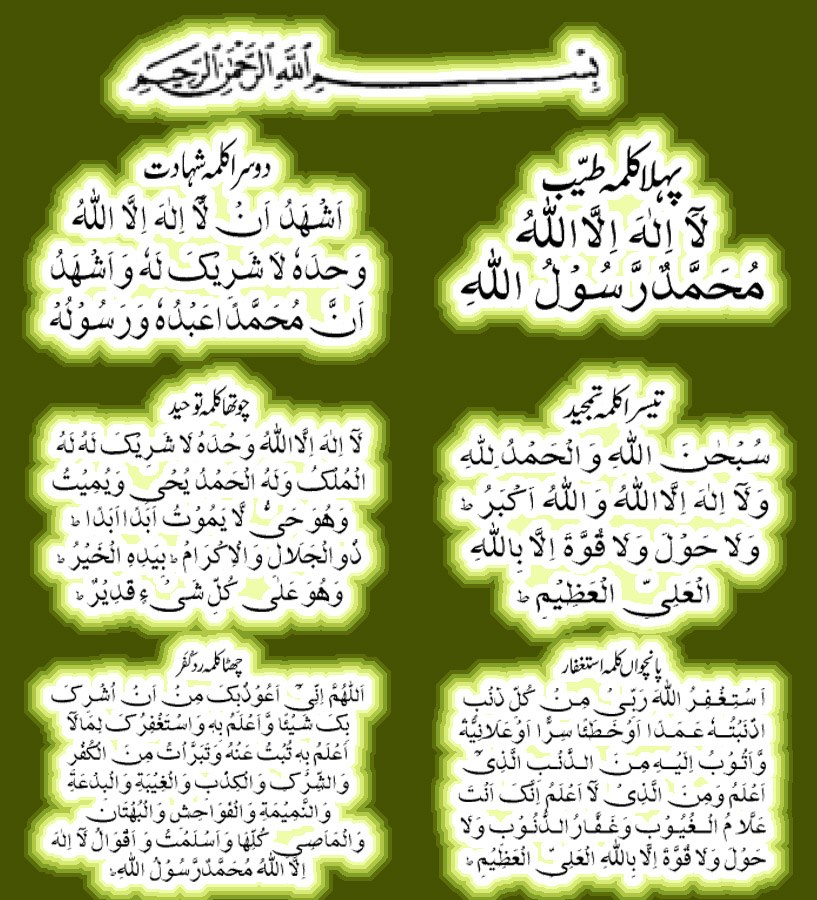 بِسْمِ اللهِ الرَّحْمٰنِ الرَّحِيْمِ
پہلا کلمہ طیّب
لَآ اِلٰهَ اِلَّا اللهُ
مُحَمَّدٌ رَّسُوْلُ اللهِ
دوسرا کلمہ شہادت
اَشْهَدُ اَنْ لَّآ اِلٰهَ اِلَّا اللهُ
وَحْدَهٗ لَا شَرِيْكَ لَهٗ وَ اَشْهَدُ
اَنَّ مُحَمَّدًا عَبْدُهٗ وَ رَسُوْلُهٗ
تیسرا کلمہ تمجید
سُبْحٰنَ اللهِ وَ الْحَمْدُ لِلّٰهِ
وَلَآ اِلٰهَ اِلَّا اللهُ وَ اللهُ اَكْبَرُ ؕ
وَلَا حَوْلَ وَلَا قُوَّةَ اِلَّا بِاللهِ
الْعَلِيِّ الْعَظِيْمِ ؕ
چوتھا کلمہ توحید
لَآ اِلٰهَ اِلَّا اللهُ وَحْدَهٗ لَا شَرِيْكَ لَهٗ لَهُ
الْمُلْكُ وَلَهُ الْحَمْدُ يُحْيٖ وَيُمِيْتُ
وَهُوَ حَيٌّ لَّا يَمُوْتُ اَبَدًا اَبَدًا ؕ
ذُو الْجَلَالِ وَالْاِكْرَامِ ؕ بِيَدِهِ الْخَيْرُ ؕ
وَهُوَ عَلٰى كُلِّ شَیْءٍ قَدِيْرٌ ؕ
پانچواں کلمہ استغفار
اَسْتَغْفِرُ اللهَ رَبِّيْ مِنْ كُلِّ ذَنْۢبٍ
اَذْنَبْتُهٗ عَمَدًا اَوْ خَطَئًا سِرًّا اَوْ عَلَانِيَّةً
وَّ اَتُوْبُ اِلَيْهِ مِنَ الذَّنْۢبِ الَّذِيْ
اَعْلَمُ وَمِنَ الَّذِيْ لَآ اَعْلَمُ اِنَّكَ اَنْتَ
عَلَّامُ الْغُيُوْبِ وَ غَفَّارُ الذُّنُوْبِ وَلَا
حَوْلَ وَلَا قُوَّةَ اِلَّا بِاللهِ الْعَلِيِّ الْعَظِيْمِ ؕ
چھٹا کلمہ ردکفر
اَللّٰهُمَّ اِنِّيْٓ اَعُوْذُ بِكَ مِنْ اَنْ اُشْرِكَ
بِكَ شَيْئًا وَّ اَعْلَمُ بِهٖ وَ اسْتَغْفِرُكَ لِمَا لَآ
اَعْلَمُ بِهٖ تُبْتُ عَنْهُ وَ تَبَرَّاْتُ مِنَ الْكُفْرِ
وَالشِّرْكِ وَ الْكِذْبِ وَ الْغِيْبَةِ وَ الْبِدْعَةِ
وَالنَّمِيْمَةِ وَ الْفَوَاحِشِ وَ الْبُهْتَانِ
وَ الْمَاصِيْ كُلِّهَا وَ اَسْلَمْتُ وَ اَقُوْلُ لَآ اِلٰهَ
اِلَّا اللهُ مُحَمَّدٌ رَّسُوْلُ اللهِ ؕ